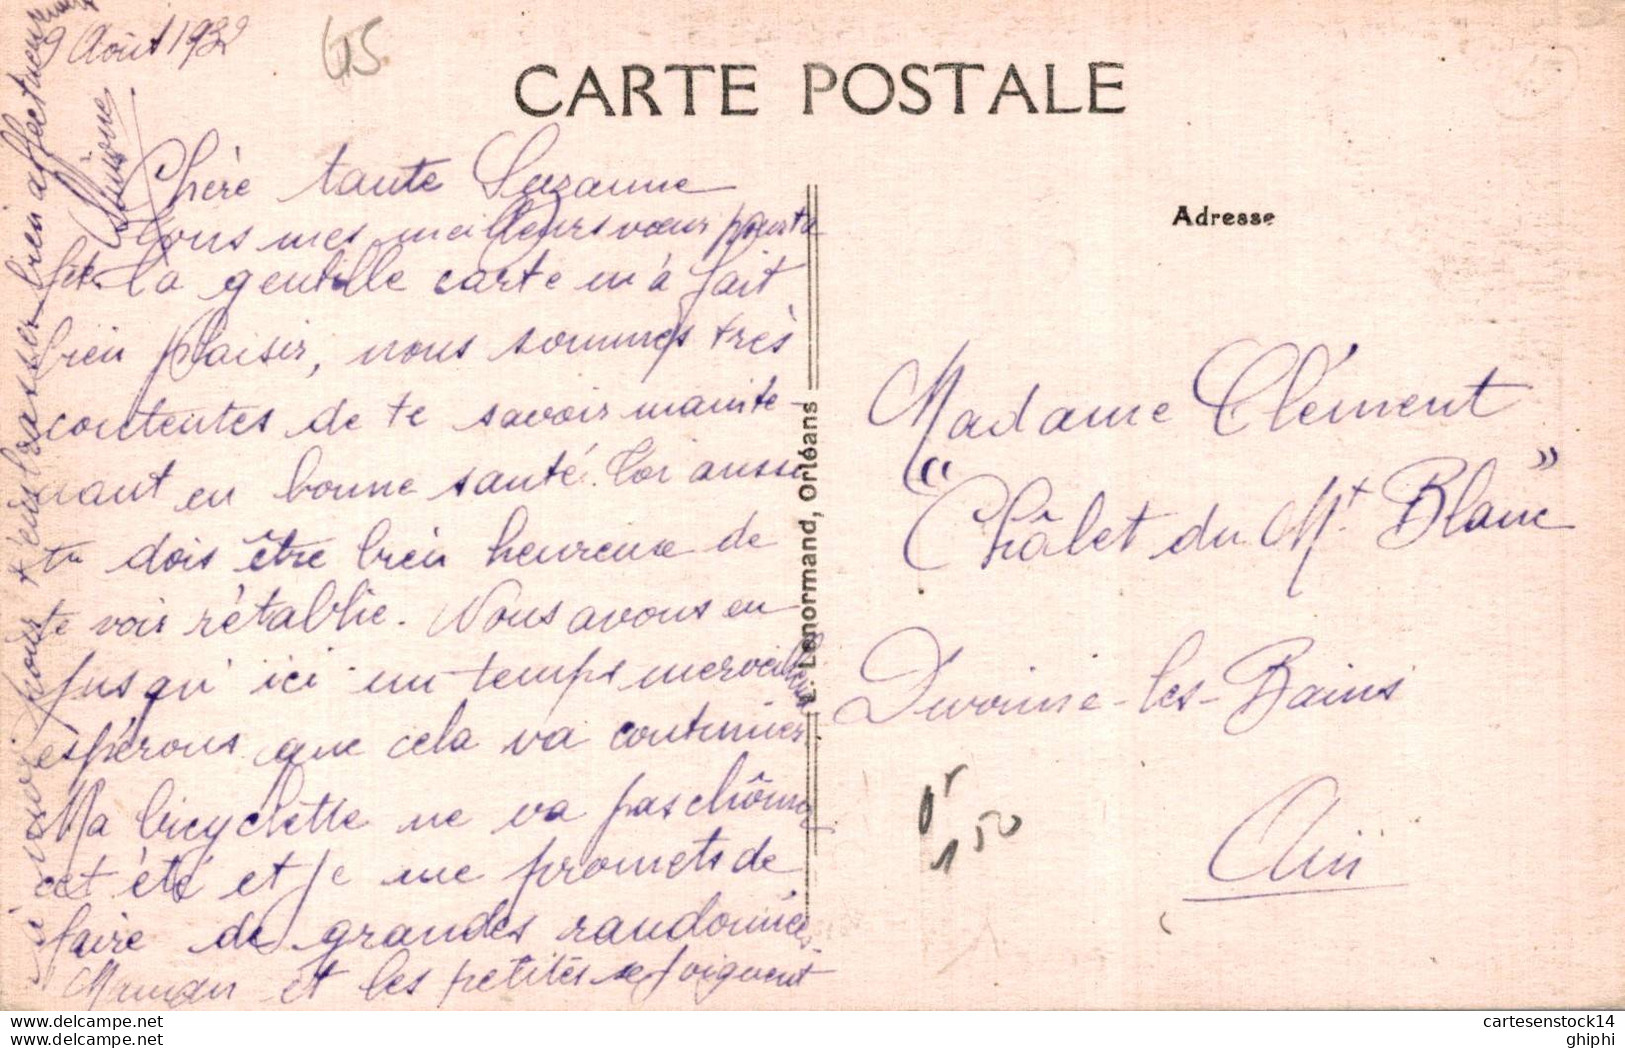 9 Août 1932
45
CARTE POSTALE
Chère tante Suzanne
tous mes meilleurs vœux pour ta
fête. Ta gentille carte m'a fait
bien plaisir, nous sommes très
contentes de te savoir mainte-
nant en bonne santé. Toi aussi
tu dois être bien heureuse de
te voir rétablie. Nous avons eu
jusqu'ici un temps merveilleux
espérons que cela va continuer
Ma bicyclette ne va pas chômer
cet été et je me promets de
faire de grandes randonnées.
Maman et les petites se joignent
à moi pour t'embrasser bien affectueusement
Simone
L. Lenormand, Orléans
Adresse
Madame Clément
"Châlet du Mt Blanc"
Divonne-les-Bains
Ain
1 50
www.delcampe.net
cartesenstock14
ghiphi